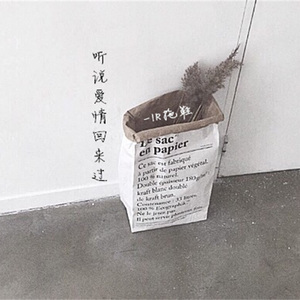 听说爱情回来过
一IR拖鞋
Le sac
en papier
Ce sac est fabriqué
à partir de papier végétal,
100 % naturel.
Double épaisseur
kraft blanc double
de kraft brun.
100 %
Ne le jetez pas.
Il peut servir plusieurs fois.